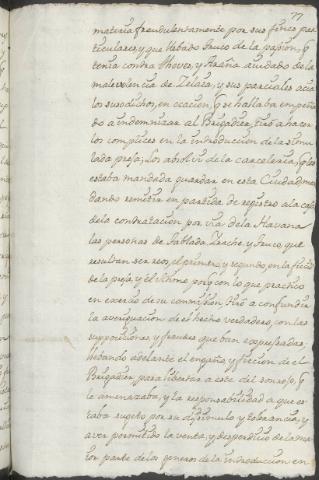 77
materia fraudulentamente por sus fines par
ticulares, y que llebado Jruco de la pasion, q
tenia contra Thover, y Araña avidado de la
malevolencia de Zelaia, y sus parciales acia
los susodichos, en ocacion, q se hallaba empeña
do a indemnizar al Brigadier, tiró a hacer
los complices en la introduccion de la simu
lada presa; los absolvió de la carceleria, q les
estaba mandada guardar en esta Ciudad man
dando remitir en partida de registro a la casa
de la contratacion por via de la Havana
las personas de Tablada, Arache y Jruco, que
resultan ser reos, el primero, y segundo, en la ficcion
de la presa, y el ultimo porq con lo que practico
en exceso de su comission tiró a confundir
la averiguacion de el hecho verdadero, con las
suposiciones, y fraudes que ban expressadas,
llebando adelante el engaño, y ficcion de el
Brigadier para libertar a este del sonrojo, q
le amenazaba, y la responsabilidad a que es
taba sugeto por su disimulo y tolerancia, y
aver permitido la venta, y desperdicio de la ma
ior parte de los generos de la introduccion en